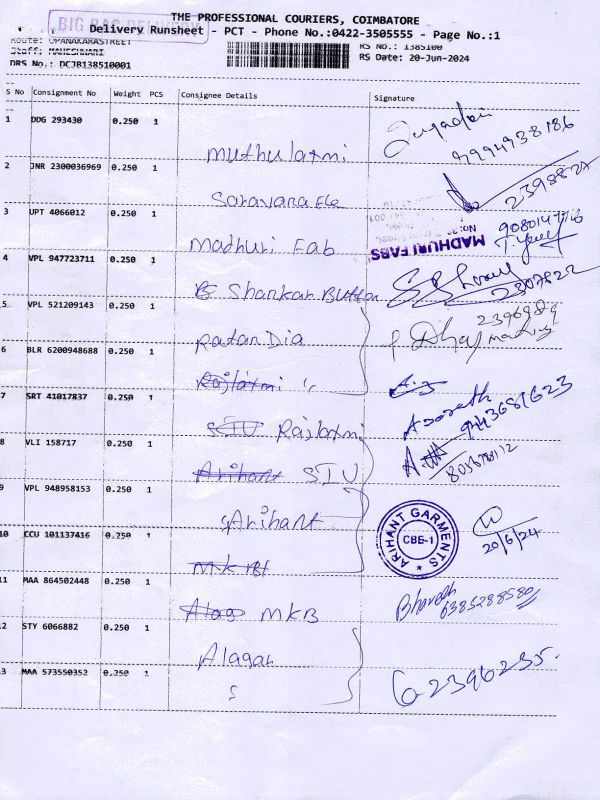 THE PROFESSIONAL COURIERS, COIMBATORE
BIG BAG DELIVERY
Delivery Runsheet - PCT - Phone No.:0422-3505555 - Page No.:1
Route: OPANAKARASTREET
Staff: MAHESHWARI
RS No.: 1385100
DRS No.: DCJB138510001
RS Date: 20-Jun-2024
S No Consignment No Weight PCS Consignee Details Signature
1 DDG 293430 0.250 1
muthulaxmi
9994938186
2 JNR 2300036969 0.250 1
Saravana Ele
239882
3 UPT 4066012 0.250 1
Madhuri Fab
MADHURI FABS
9080147716
4 VPL 947723711 0.250 1
Shankar Button
2307822
5 VPL 521209143 0.250 1
ratan Dia
2396989
6 BLR 6200948688 0.250 1
Rajlaxmi
7 SRT 41017837 0.250 1
STU Rajlaxmi
9443681623
8 VLI 158717 0.250 1
Arihant STU
9 VPL 948958153 0.250 1
Arihant
ARIHANT GARMENTS
CBE-1
20/6/24
10 CCU 101137416 0.250 1
11 MAA 864502448 0.250 1
Alag MKB
Bharath
6385288580
12 STY 6066882 0.250 1
Alagar
13 MAA 573550352 0.250 1
2396235